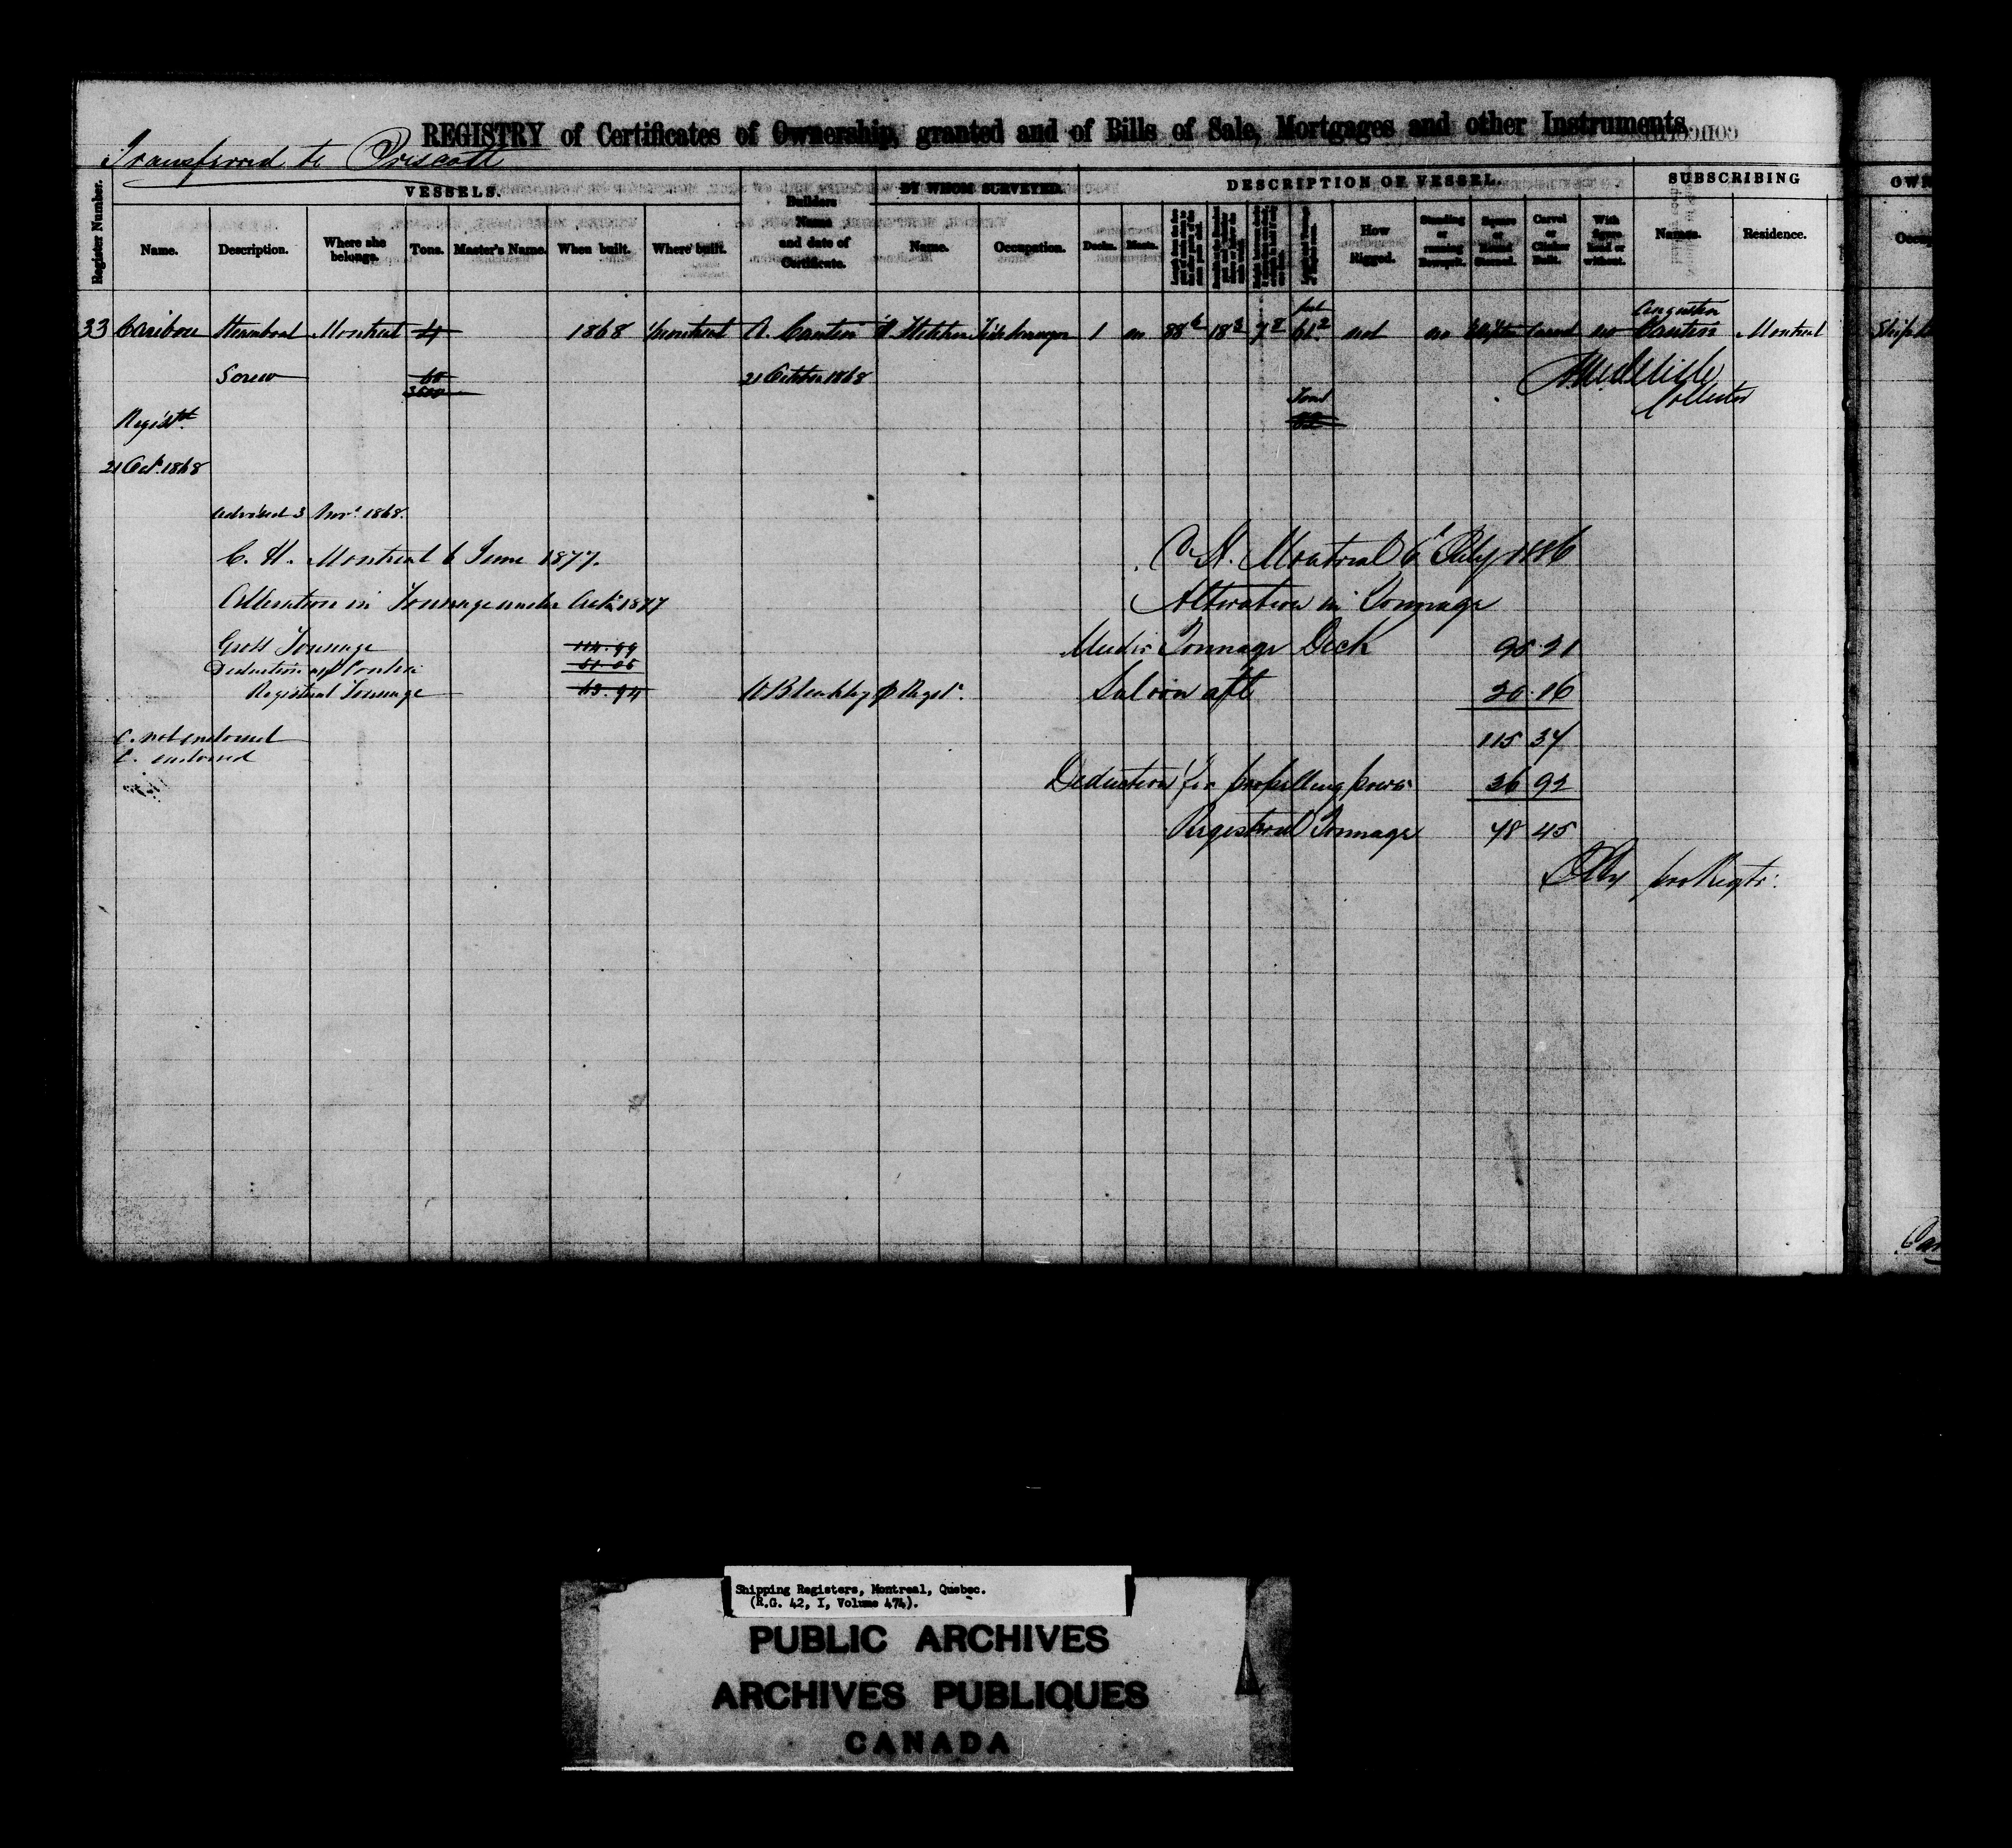 REGISTRY of Certificates of Ownership, granted and of Bills of Sale, Mortgages and other Instruments
Transferred to Prescott
VESSELS. BY WHOM SURVEYED. DESCRIPTION OF VESSEL. SUBSCRIBING OWN
Register Number. Name. Description. Where she belongs. Tons. Master's Name. When built. Where built. Builders Name and date of Certificate. Name. Occupation. Decks. Masts. How Rigged. Standing or running Bowsprit. Square or Round Sterned. Carvel or Clinker Built. With figure Head or without. Names. Residence. Occup
33 Caribou Steamboat Montreal 41 1868 Montreal A. Cantin Tide Surveyor 1 no 88 6 18 7 8 61 2 not no Carvel no Augustin Cantin Montreal Ship
Screw 60 3600 21 October 1868
Collector
Regist.d
21 Oct. 1868
Advised 3 Nov. 1868.
C. H. Montreal 6 June 1877.
Alteration in Tonnage under Act 1877
Gross Tonnage 114.99
Deduction
Registered Tonnage 63.94
C. not endorsed
C. endorsed
C. H. Montreal 6 July 1886
Alteration in Tonnage
Under Tonnage Deck 95.21
Saloon aft 20.16
115 37
Deduction for propelling power 36 92
Registered Tonnage 78 45
pro Regtr.
Shipping Registers, Montreal, Quebec.
(R.G. 42, I, Volume 474).
PUBLIC ARCHIVES
ARCHIVES PUBLIQUES
CANADA